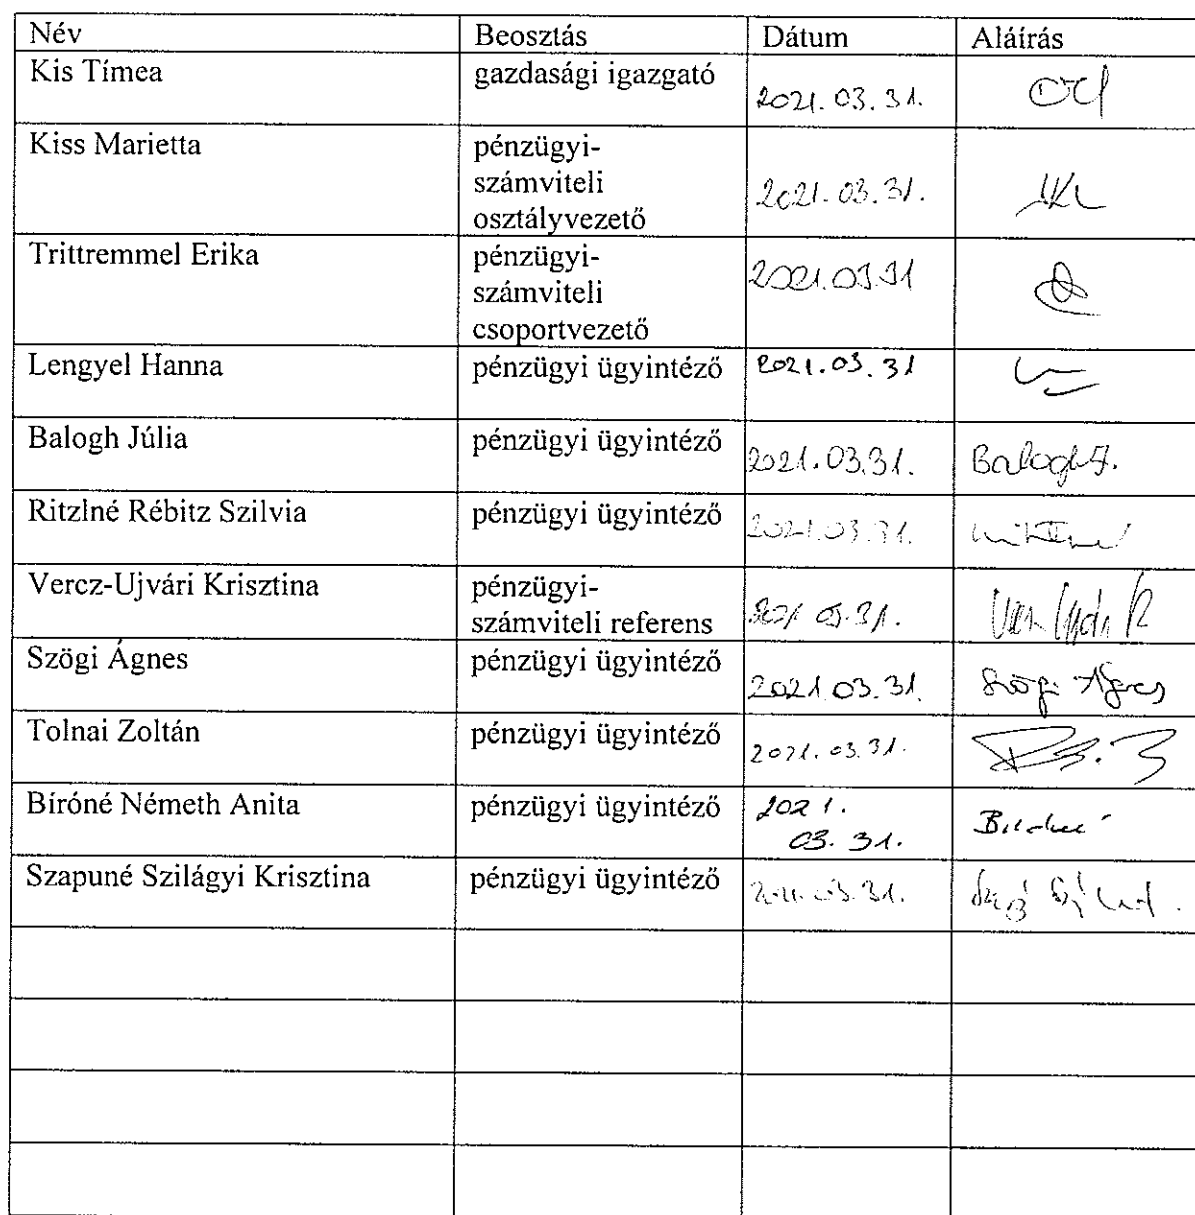 Név Beosztás Dátum Aláírás
Kis Tímea gazdasági igazgató
2021.03.31.
Kiss Marietta pénzügyi-
számviteli
osztályvezető
2021.03.31.
Trittremmel Erika pénzügyi-
számviteli
csoportvezető
2021.03.31
Lengyel Hanna pénzügyi ügyintéző 2021.03.31
Balogh Júlia pénzügyi ügyintéző
2021.03.31. Balogh J.
Ritzlné Rébitz Szilvia pénzügyi ügyintéző
2021.03.31.
Vercz-Ujvári Krisztina pénzügyi-
számviteli referens
2021.03.31.
Szögi Ágnes pénzügyi ügyintéző
2021.03.31. Szögi Ágnes
Tolnai Zoltán pénzügyi ügyintéző
2021.03.31.
Bíróné Németh Anita pénzügyi ügyintéző 2021.
03.31.
Szapuné Szilágyi Krisztina pénzügyi ügyintéző
2021.03.31.